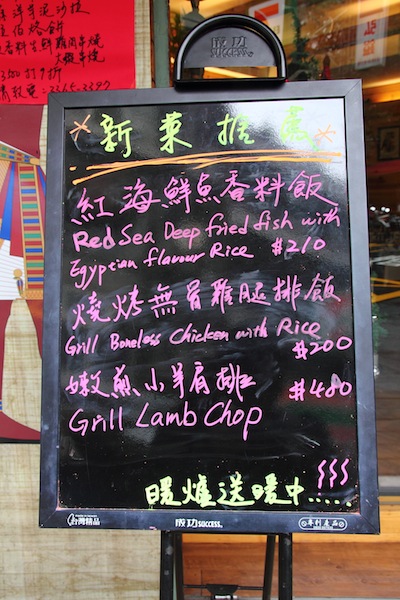 成功
SUCCESS
* 新菜推薦 *
紅海鮮魚香料飯
Red Sea Deep fried fish with
Egyptian flavour Rice $210
燒烤無骨雞腿排飯
Grill Boneless Chicken with Rice
$200
嫩煎小羊肩排 $480
Grill Lamb Chop
暖爐送暖中.....
台灣精品
成功 SUCCESS.
專利產品